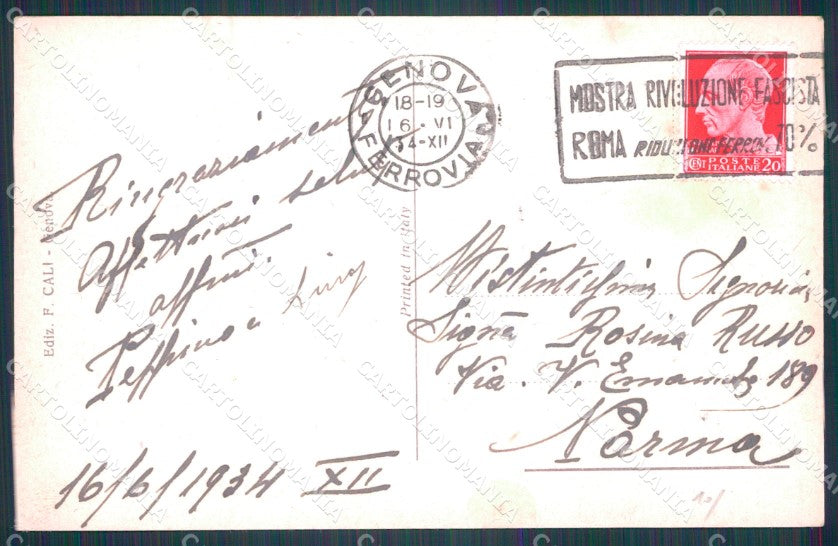 GENOVA
18-19
16·VI
34-XII
FERROVIA
MOSTRA RIVOLUZIONE FASCISTA
ROMA RIDUZIONI FERROV. 70%
POSTE
ITALIANE
CENT 20
Ringraziamenti
Affettuosi saluti
affmi.
Peppino e
16/6/1934 XII
Ediz. F. CALI - Genova
Printed in Italy
Distintissima Signorina
Signa Rosina Russo
Via. V. Emanuele 189
Parma
CARTOLINOMANIA